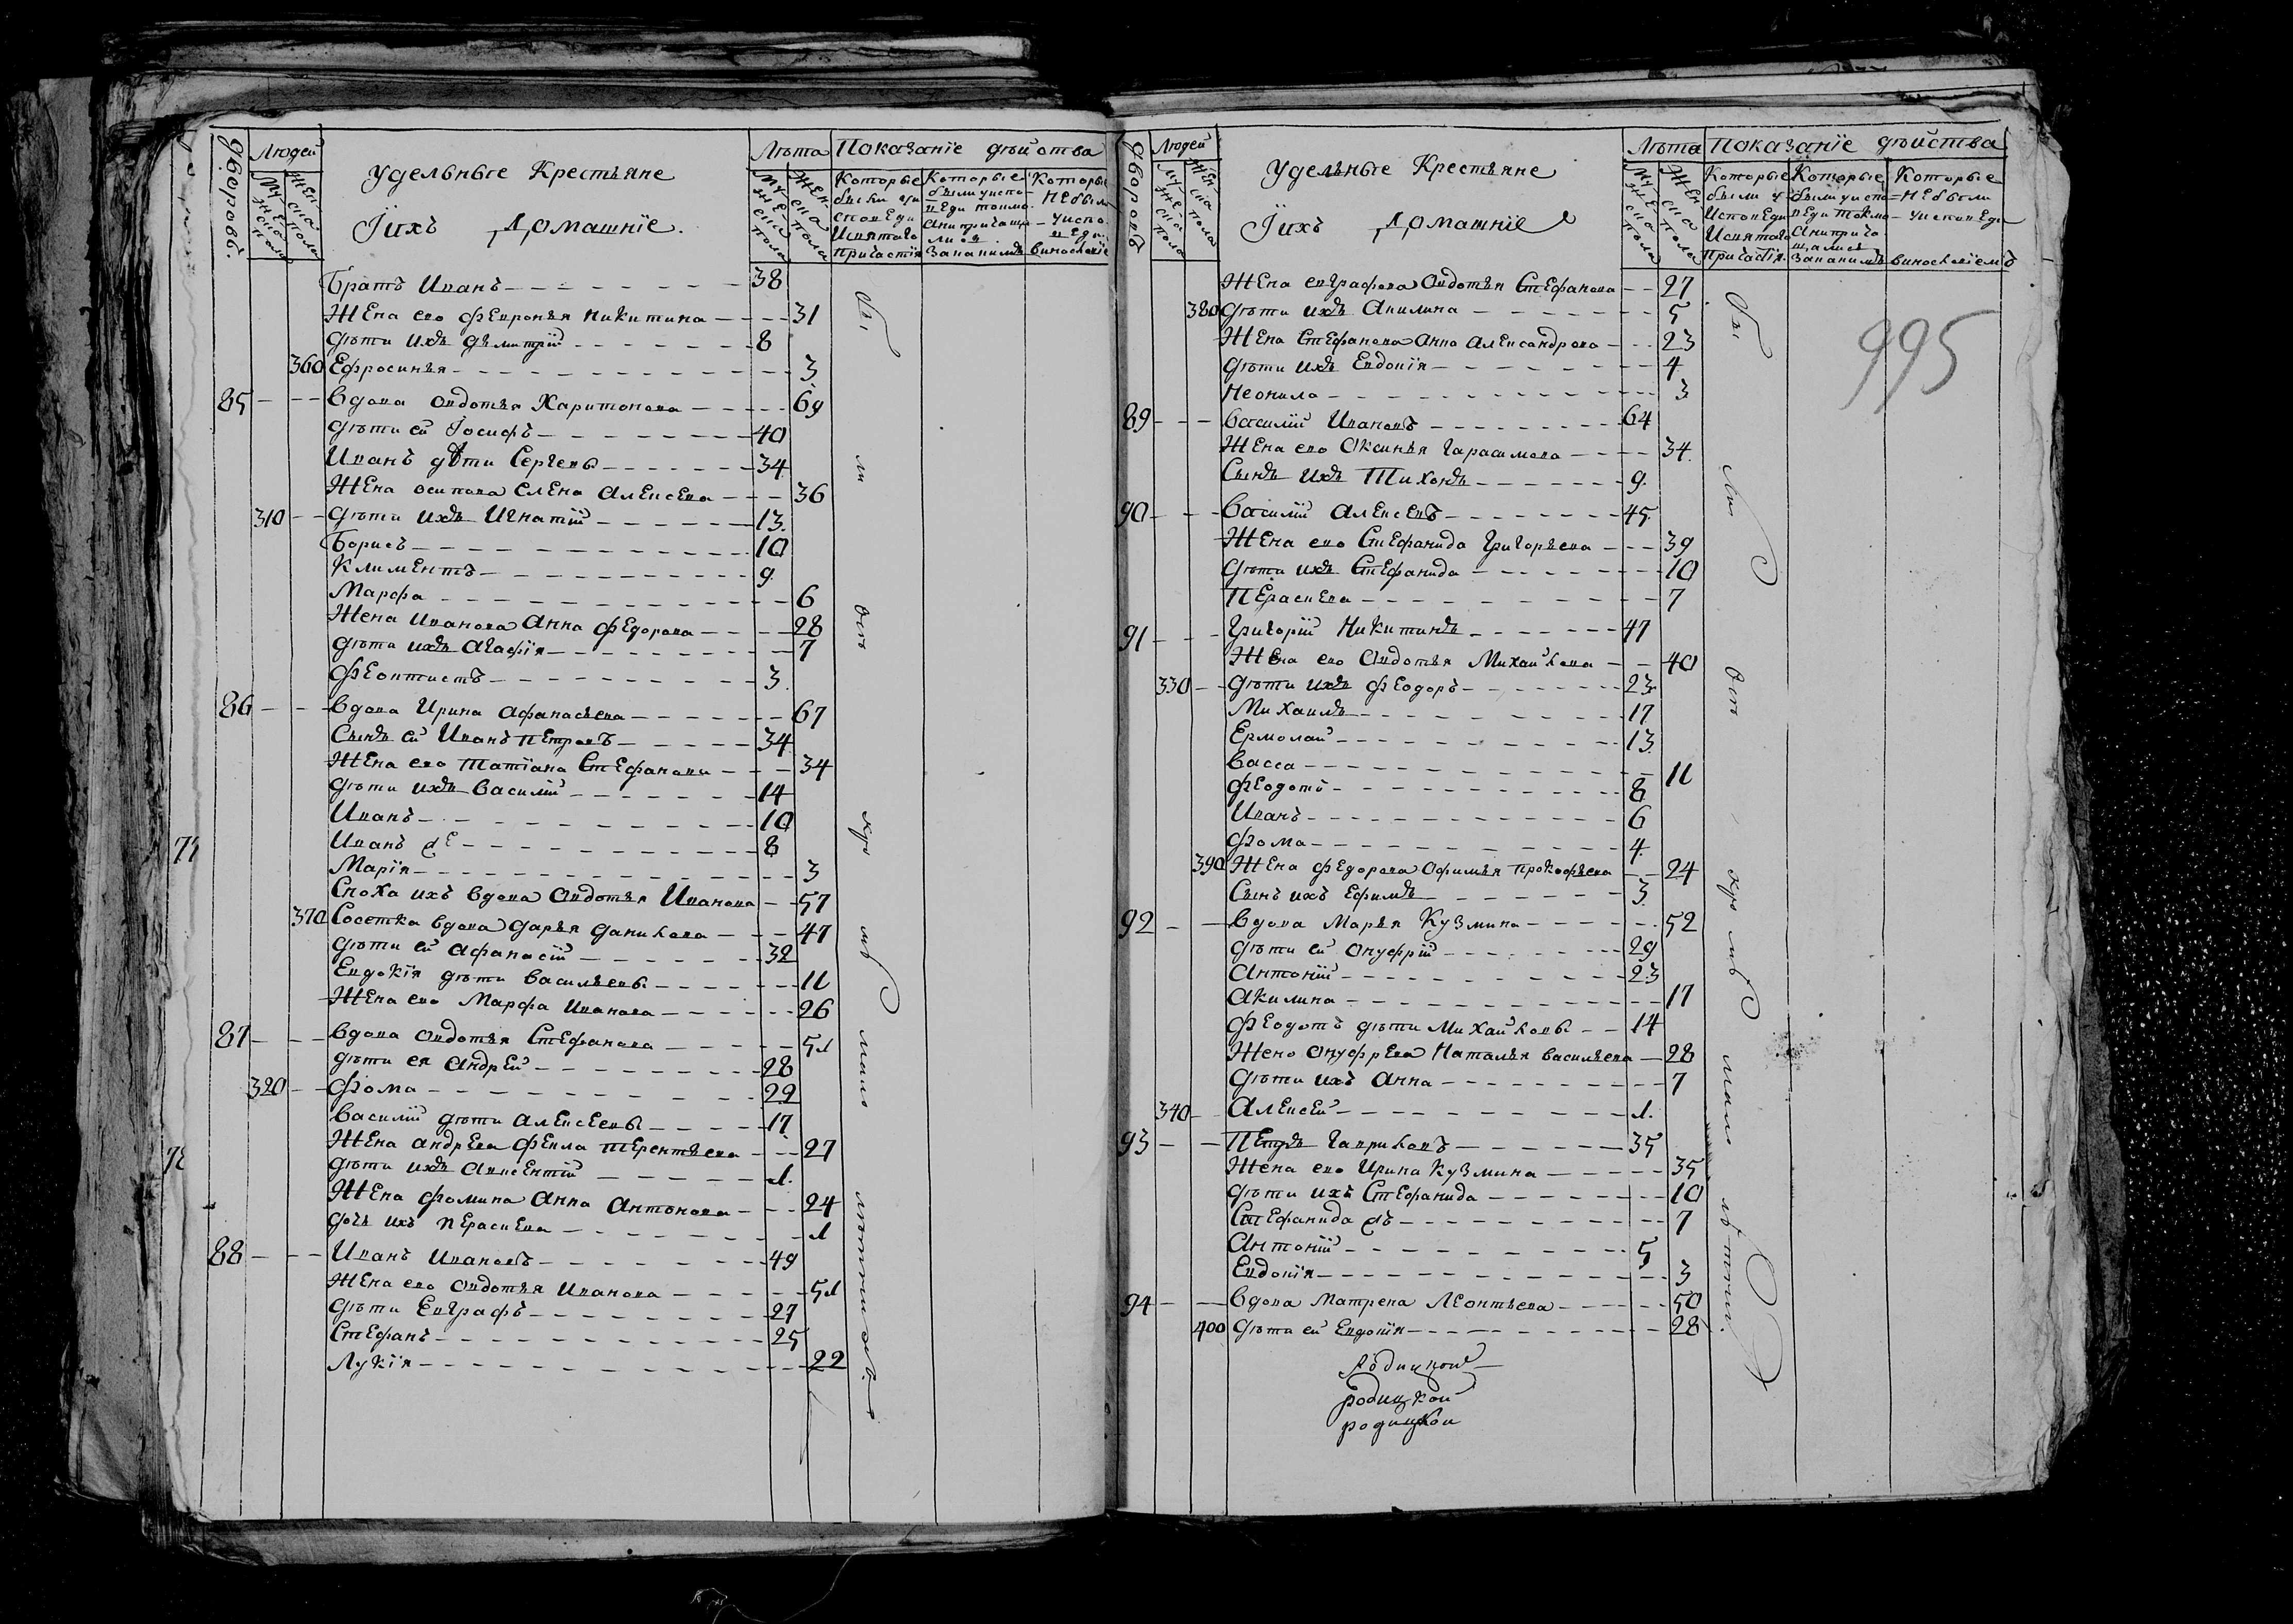 Дворовъ.
Людей
Мужеска пола
Женска пола
Удельные Крестьяне
Iихъ Домашнiе.
Лѣта
Мужеска пола
Женска пола
Показанiе дѣйства
Которые были уисповеди исвятаго причастiя
Которые были уиспаведи токмо анипричащались
Которые небыли уисповеди
Братъ Иванъ 38
Жена ево Февронья Никитина 31
дѣти ихъ Дѣмитрiй 8
360 Ефросинья 3
85 Вдова Овдотья Харитонова 69
дѣти ей Iосифъ 40
Иванъ дѣти Сергеевы 34
Жена Осипова Елена Алексеева 36
310 дѣти ихъ Игнатiй 13
Борисъ 10
Климентъ 9
Марфа 6
Жена Иванова Анна Федорова 28
дѣти ихъ Агафiя 7
Феоктистъ 3
86 Вдова Ирина Афанасьева 67
Сынъ ей Иванъ Петровъ 34
Жена ево Татiана Стефанова 34
дѣти ихъ Василiй 14
Иванъ 10
Иванъ 8
Марiя 3
Сноха ихъ вдова Овдотья Иванова 57
370 Сосетка вдова Дарья Данилова 47
дѣти ей Афанасiй 32
Евдокiя дѣти Васильевы 11
Жена ево Марфа Иванова 26
87 Вдова Овдотья Стефанова 51
дѣти ея Андрей 28
320 Фома 22
Василiй дѣти Алексеевы 17
Жена Андрева Фекла Терентьева 27
дѣти ихъ Авксентiй 1
Жена Фомина Анна Антонова 24
дочь ихъ Пераскева 1
88 Иванъ Ивановъ 49
Жена ево Овдотья Иванова 51
дѣти Евграфъ 27
Стефанъ 25
Лукiя 22
Дворовъ
Людей
Мужеска пола
Женска пола
Удельные Крестьяне
Iихъ Домашнiе
Лѣта
Мужеска пола
Женска пола
Показанiе дѣйства
Которые были уисповеди исвятаго причастiя
Которые были уисповеди токмо анипричащались
Которые небыли уисповеди
995
Жена Евграфова Овдотья Стефанова 27
380 дѣти ихъ Акилина 5
Жена Стефанова Анна Александрова 23
дѣти ихъ Евдокiя 4
Неонила 3
89 Василiй Ивановъ 64
Жена ево Оксинья Гарасимова 34
Сынъ ихъ Тихонъ 9
90 Василiй Алексеевъ 45
Жена ево Стефанида Григорьева 39
дѣти ихъ Стефанида 10
Пераскева 7
91 Григорiй Никитинъ 47
Жена ево Овдотья Михайлова 40
330 дѣти ихъ Феодоръ 23
Михаилъ 17
Ермолай 13
Васса 11
Феодотъ 8
Иванъ 6
Фома 4
390 Жена Федорова Офимья Прокофьева 24
Сынъ ихъ Ефимъ 3
92 Вдова Марья Кузмина 52
дѣти ей Онуфрiй 29
Антонiй 23
Акилина 17
Феодотъ дѣти Михайловы 14
Жена Онуфрева Наталья Васильева 28
дѣти ихъ Анна 7
340 Алексей 1
93 Петръ Гавриловъ 35
Жена ево Ирина Кузмина 35
дѣти ихъ Стефанида 10
Стефанида 7
Антонiй 5
Евдокiя 3
94 Вдова Матрена Леонтьева 50
400 дѣти ей Евдокiя 28
родицкой
родицкой